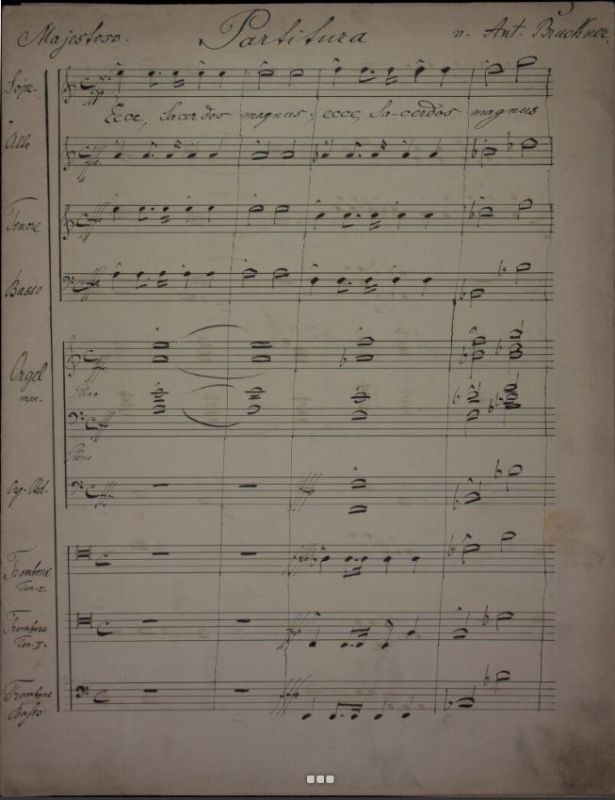 Majestoso. Partitura v. Ant. Bruckner
Sopr.
Ecce, Sacerdos magnus; ecce, Sa-cerdos magnus
Alto
Tenore
Basso
Orgel
man.
Pleno
Org. Ped.
Trombone
Ten-I.
Trombone
Ten-II.
Trombone
Basso